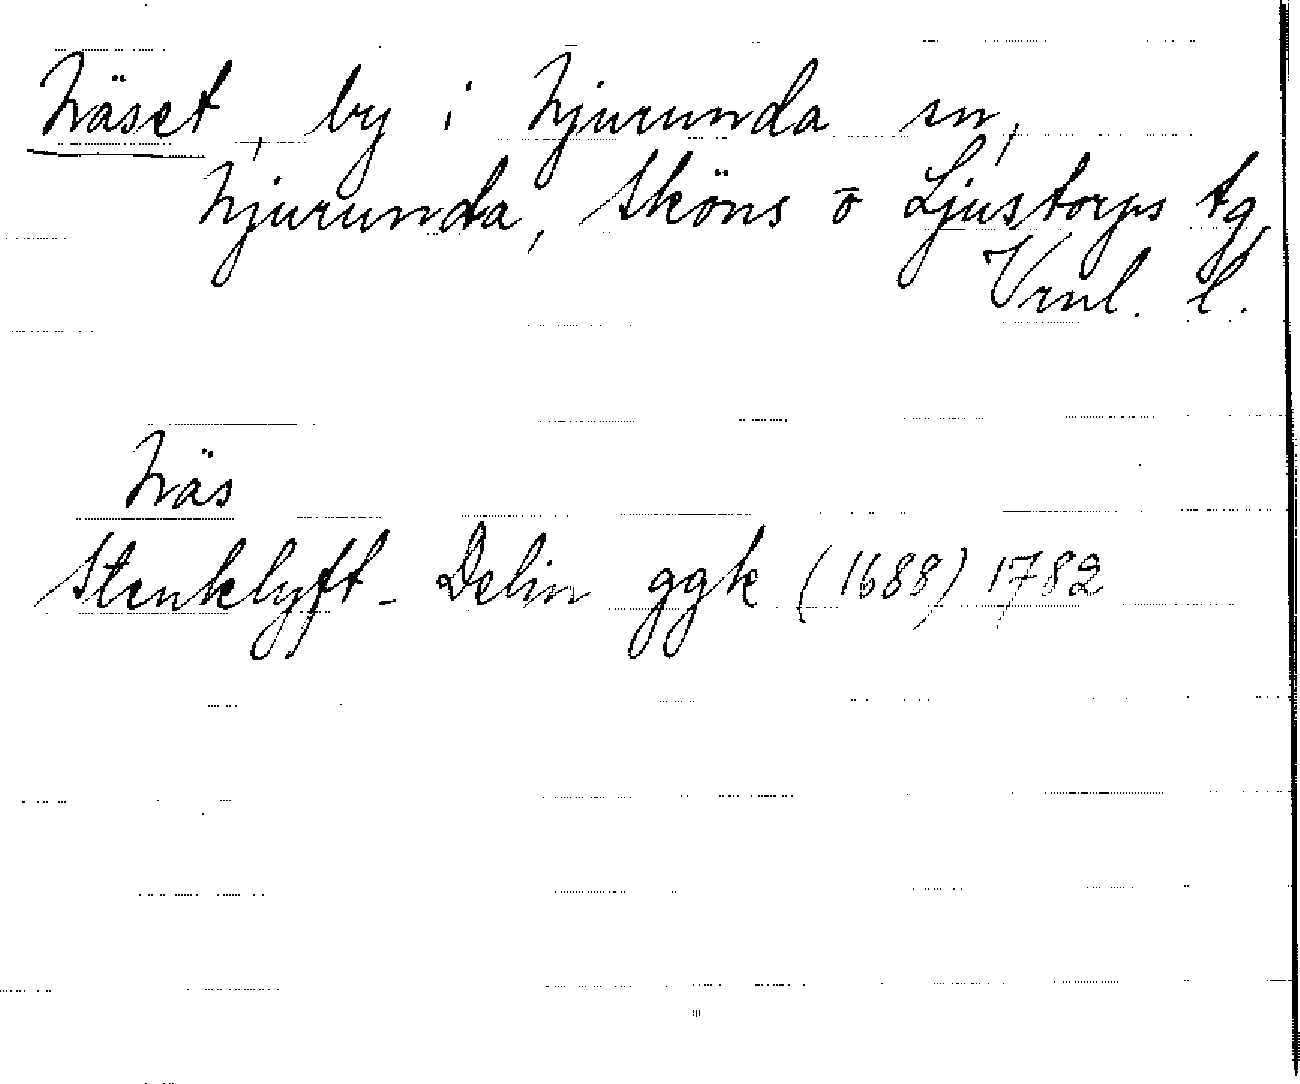 Näset, by i Njurunda sn,
Njurunda, Sköns o Ljustorps tg,
Vrnl. l.
Näs
Stenklyft - Delin ggk (1688) 1782